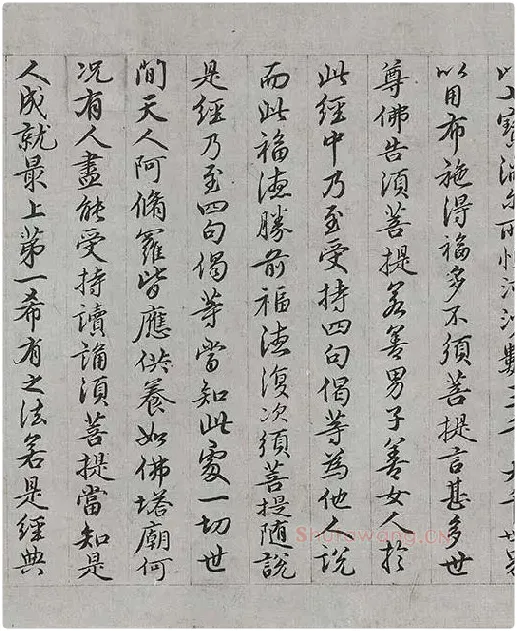 以七寶滿尒所恒河沙數三千大千世界
以用布施得福多不須菩提言甚多世
尊佛告須菩提若善男子善女人於
此經中乃至受持四句偈等為他人說
而此福德勝前福德復次須菩提隨說
是經乃至四句偈等當知此處一切世
間天人阿脩羅皆應供養如佛塔廟何
况有人盡能受持讀誦須菩提當知是
人成就最上第一希有之法若是經典
Shufawang.CN